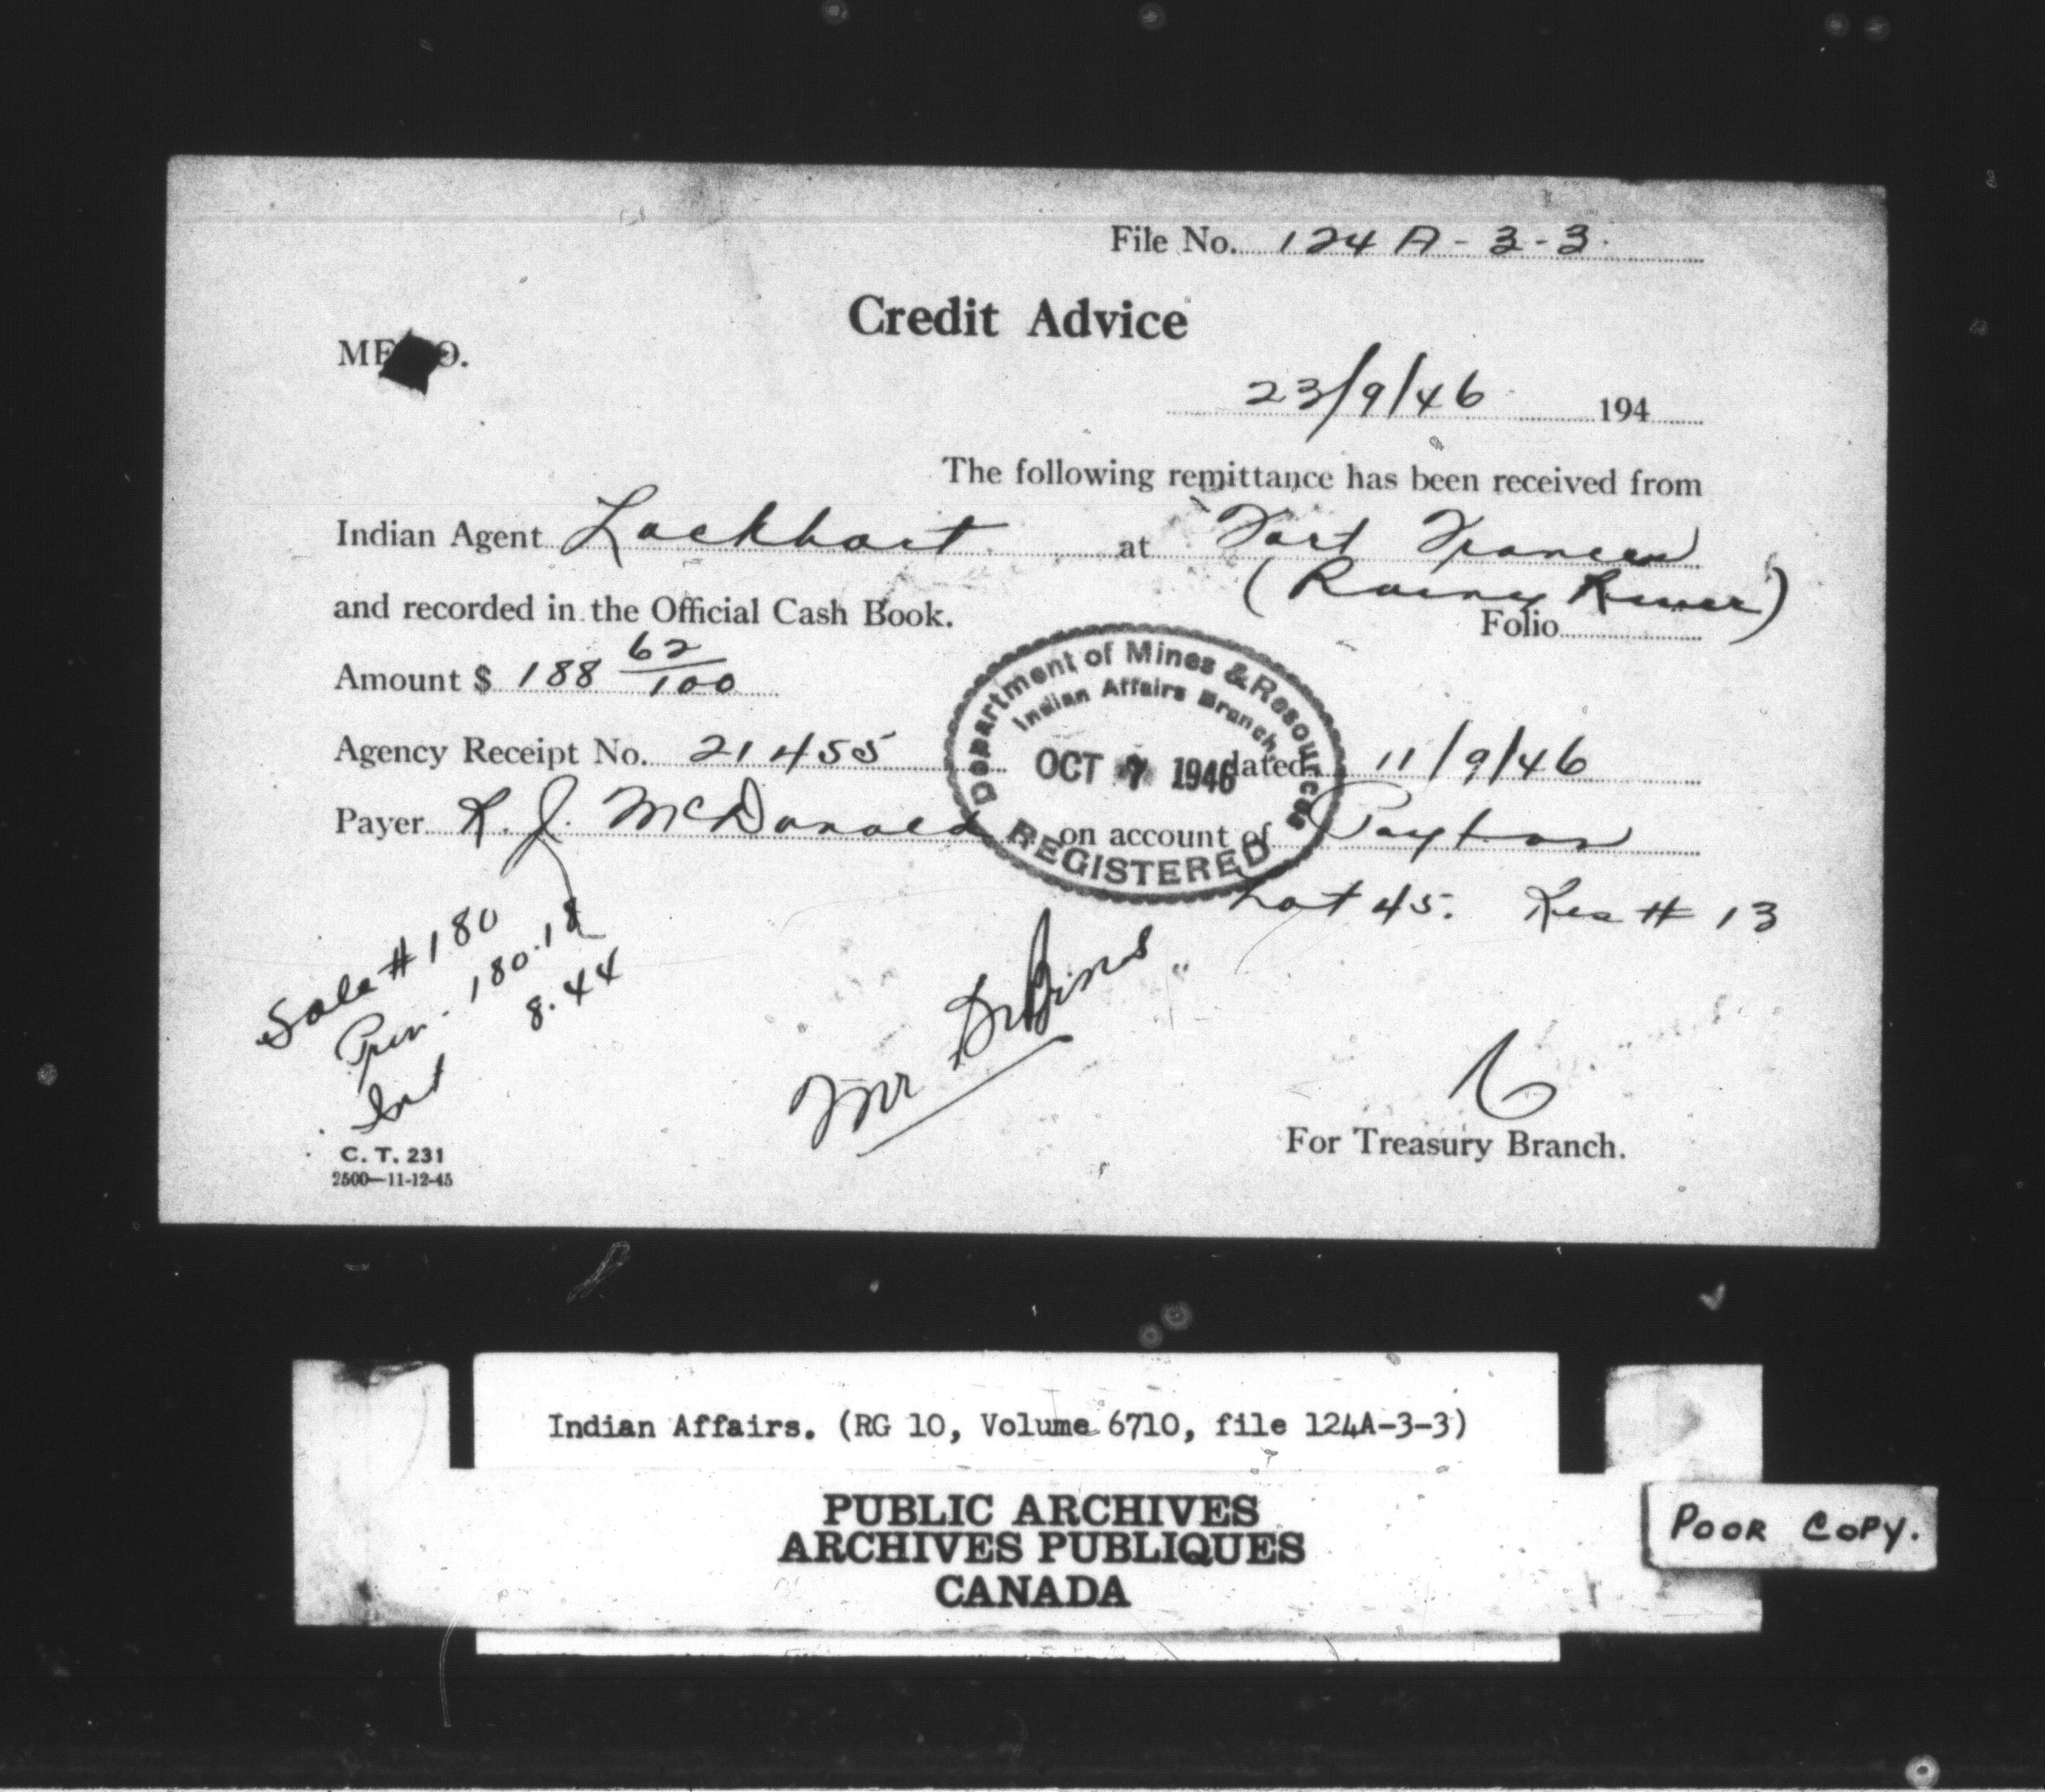 File No. 124 A - 3-3.
Credit Advice
MEMO.
23/9/46 194
The following remittance has been received from
Indian Agent Lockhart at Fort Frances
(Rainy River)
and recorded in the Official Cash Book.
Folio
Amount $ 188 62/100
Department of Mines & Resources
Indian Affairs Branch
OCT 7 1946
REGISTERED
Agency Receipt No. 21455 dated 11/9/46
Payer R. J. McDonald on account of
Lot 45. Res # 13
Sale # 180
Prin. 180.18
Int 8.44
Mr
For Treasury Branch.
C. T. 231
2500—11-12-45
Indian Affairs. (RG 10, Volume 6710, file 124A-3-3)
PUBLIC ARCHIVES
ARCHIVES PUBLIQUES
CANADA
POOR COPY.